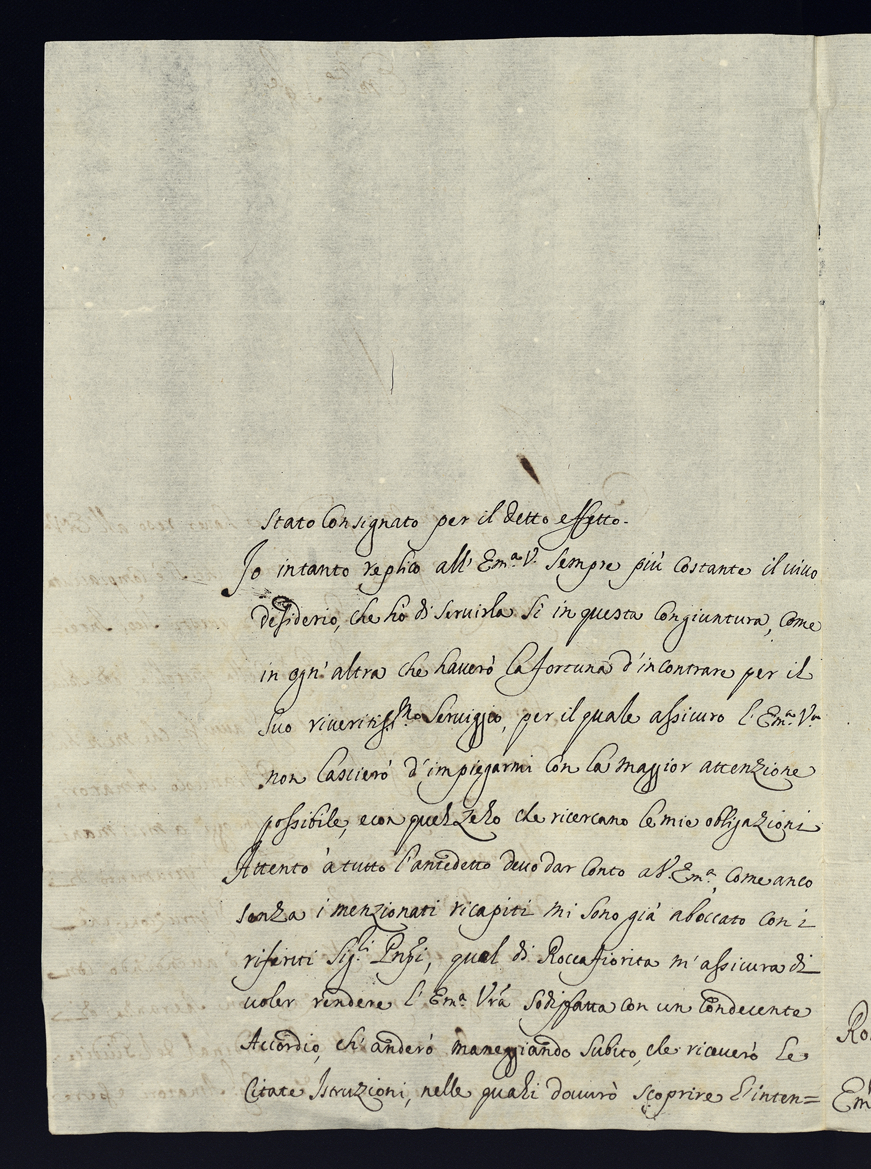 stato Consignato per il detto effetto.
Io intanto replico all' Em.ª V.ª sempre più costante il vivo
desiderio, che hò di servirla sì in questa congiuntura, come
in ogn' altra che haverò la fortuna d'incontrare per il
suo riveritiss.mo Serviggio, per il quale assicuro l' Em.ª V.ra
non lascierò d' impiegarmi con la maggior attenzione
possibile, e con quel zelo che ricercano le mie obligazioni
Attento à tutto l'antedetto devo dar Conto a V. Em.ª, come anco
senza i menzionati ricapiti mi sono già aboccato con i
riferiti Sig.li Pnpi, qual di Roccafiorita m' assicura di
voler rendere l' Em.ª Vrã sodisfatta con un condecente
Accordio, ch' anderò maneggiando subito, che riceverò le
Citate Istruzzioni, nelle quali dovurò scoprire l'inten=
Ro
Em